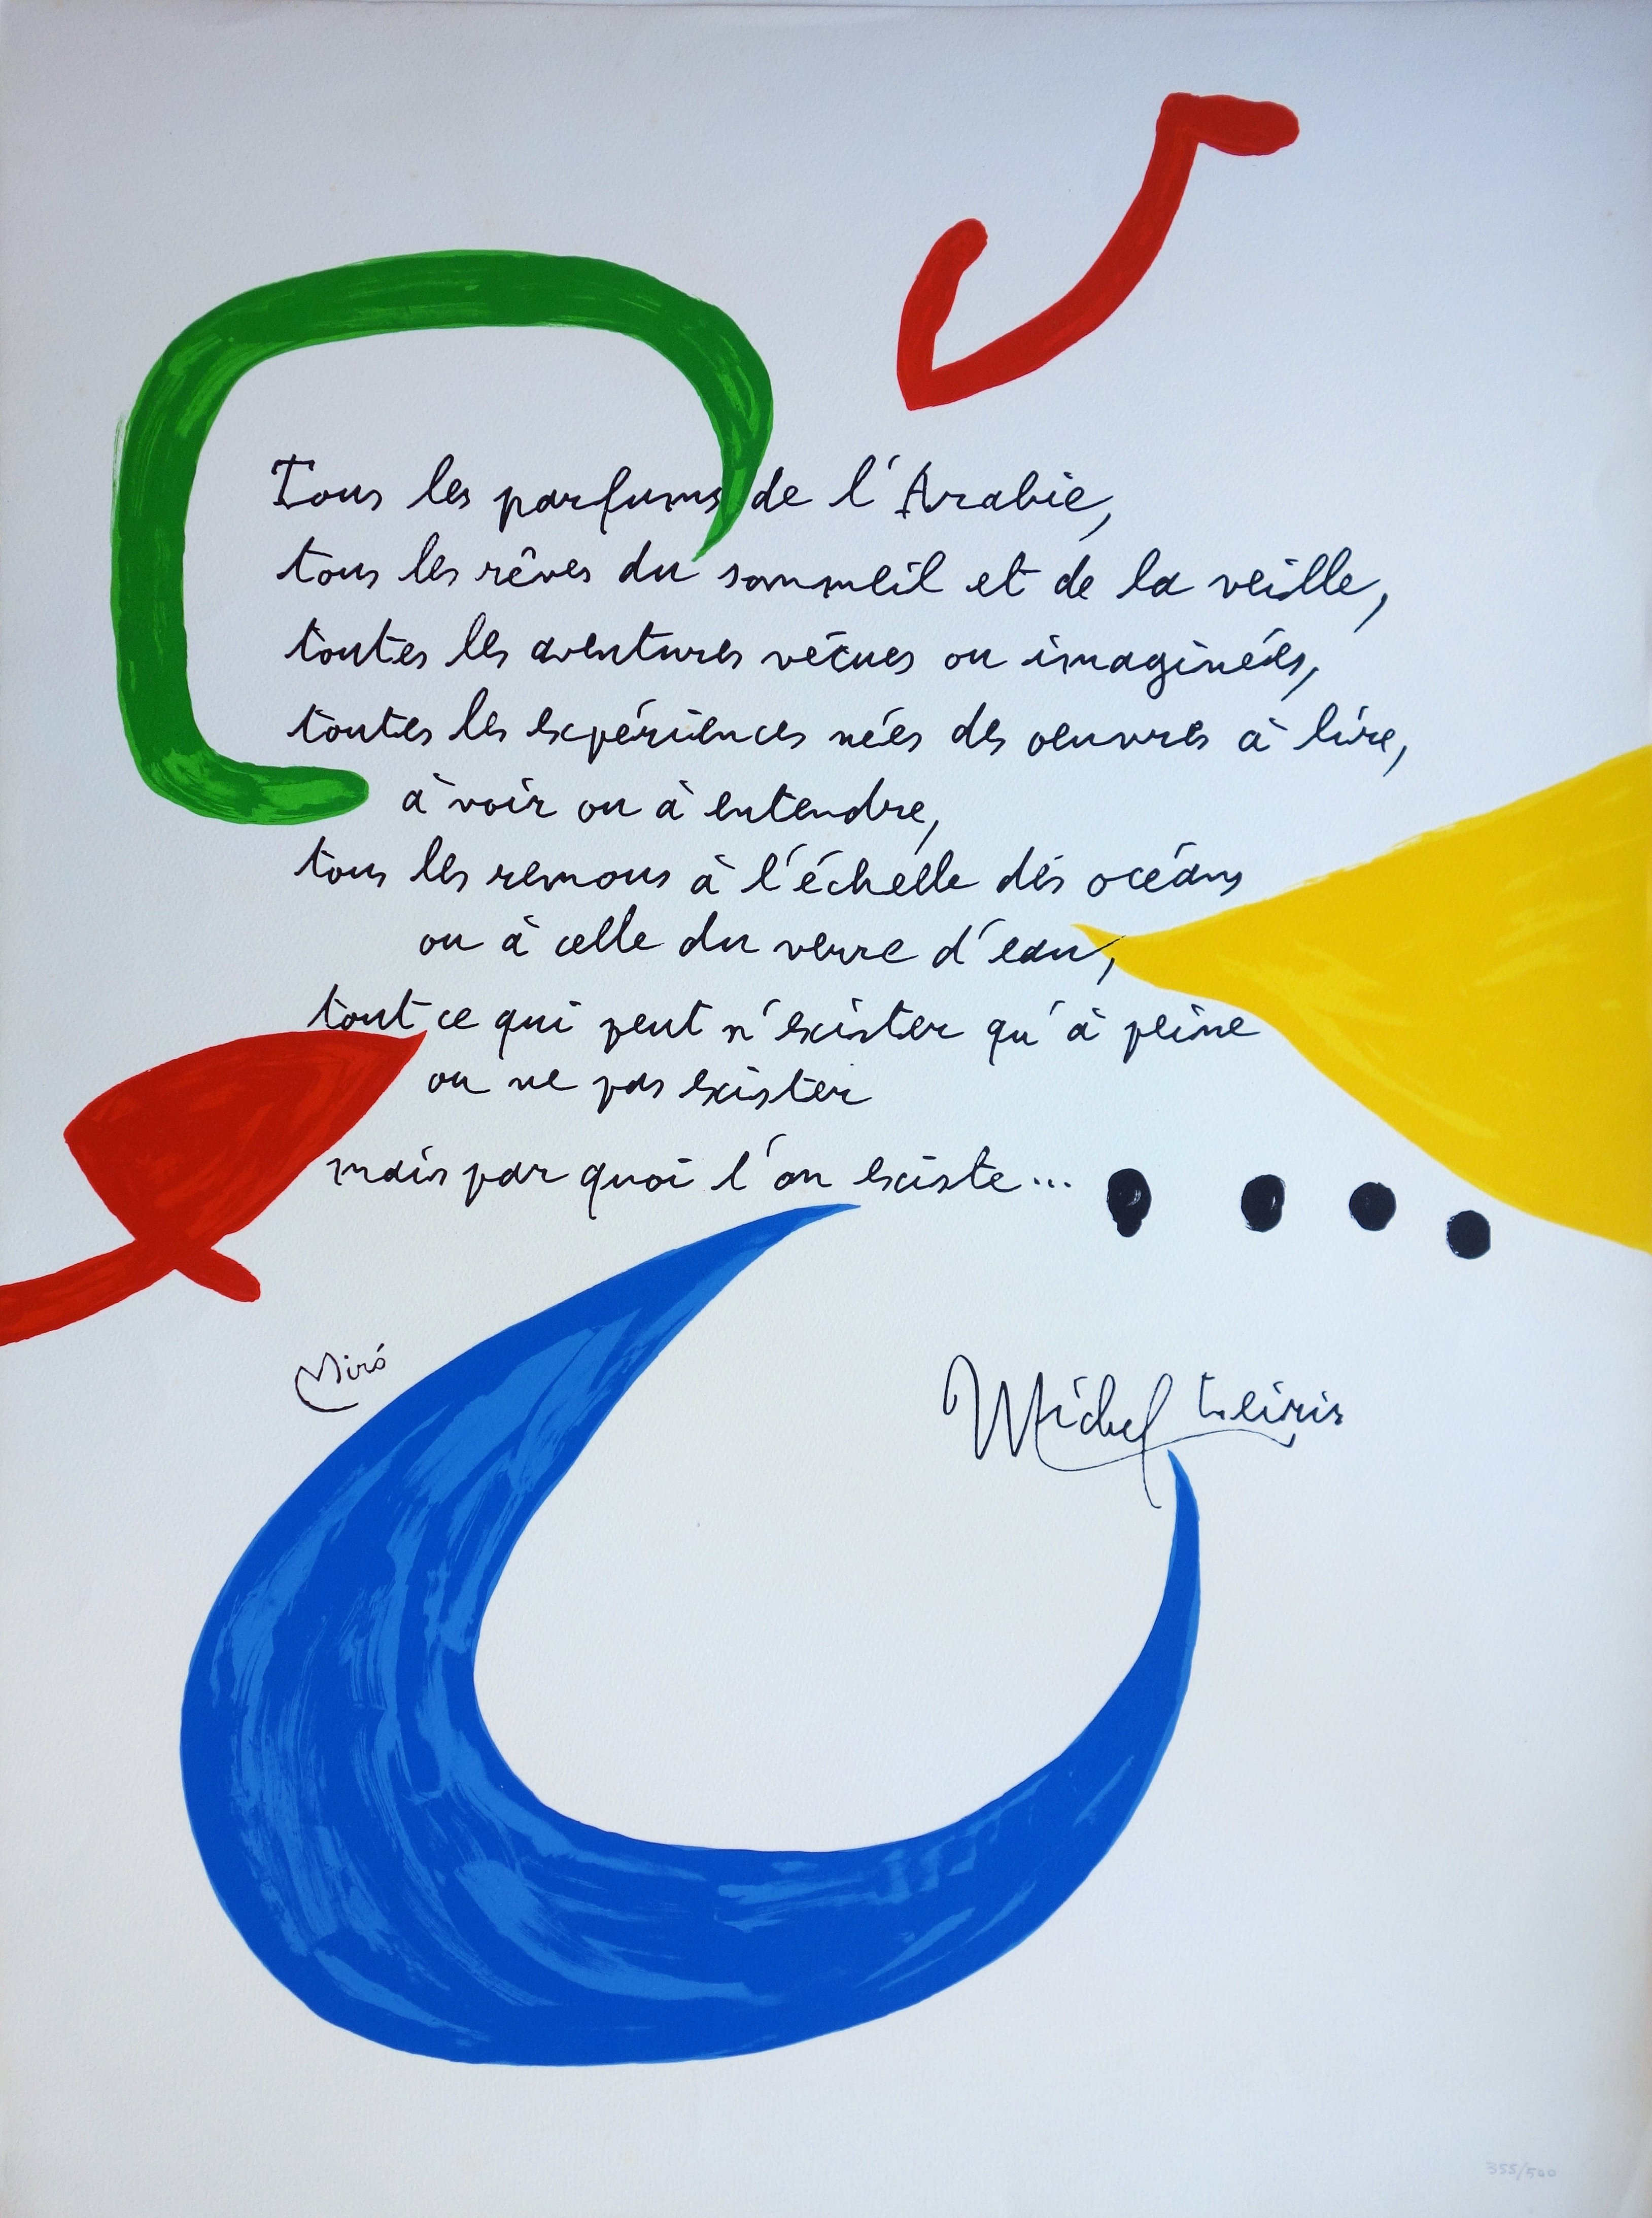 Tous les parfums de l'Arabie,
tous les rêves du sommeil et de la veille,
toutes les aventures vécues ou imaginées,
toutes les expériences nées des oeuvres à lire,
à voir ou à entendre,
tous les remous à l'échelle des océans
ou à celle du verre d'eau,
tout ce qui peut n'exister qu'à peine
ou ne pas exister
mais par quoi l'on existe...
Miró
Michel Leiris
355/500